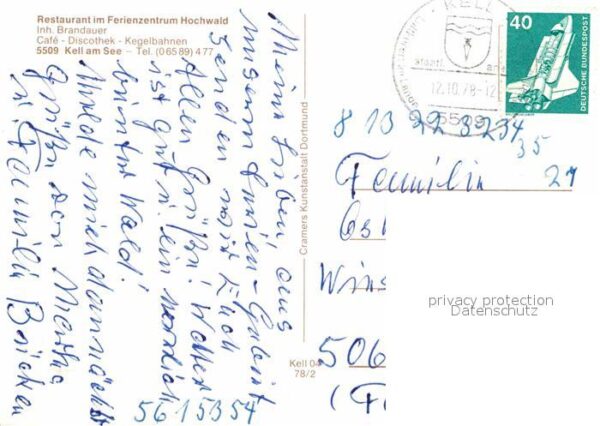 Restaurant im Ferienzentrum Hochwald
Inh. Brandauer
Café - Discothek - Kegelbahnen
5509 Kell am See – Tel. (06589) 477
Meine Lieben, aus
unserem Ferien-Gebiet
senden wir Euch
Allen Grüße! Wetter
ist gut, ein
bunter Wald!
Melde mich demnächst
Grüße von Martha
u. Familie
5615354
Cramers Kunstanstalt Dortmund
Kell 04
78/2
KELL
staatl.
12.10.78-12
5509
40
DEUTSCHE BUNDESPOST
8 13 22 3234
35
Familie 27
Win
506
(F
privacy protection
Datenschutz